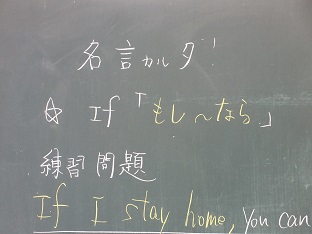 名言カルタ!
☆ If「もし〜なら」
練習問題
If I stay home, you can